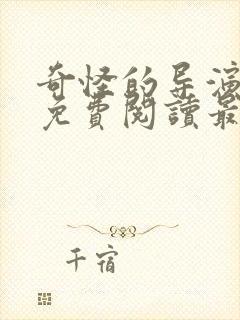 奇怪的导演
免費閱讀最
千宿